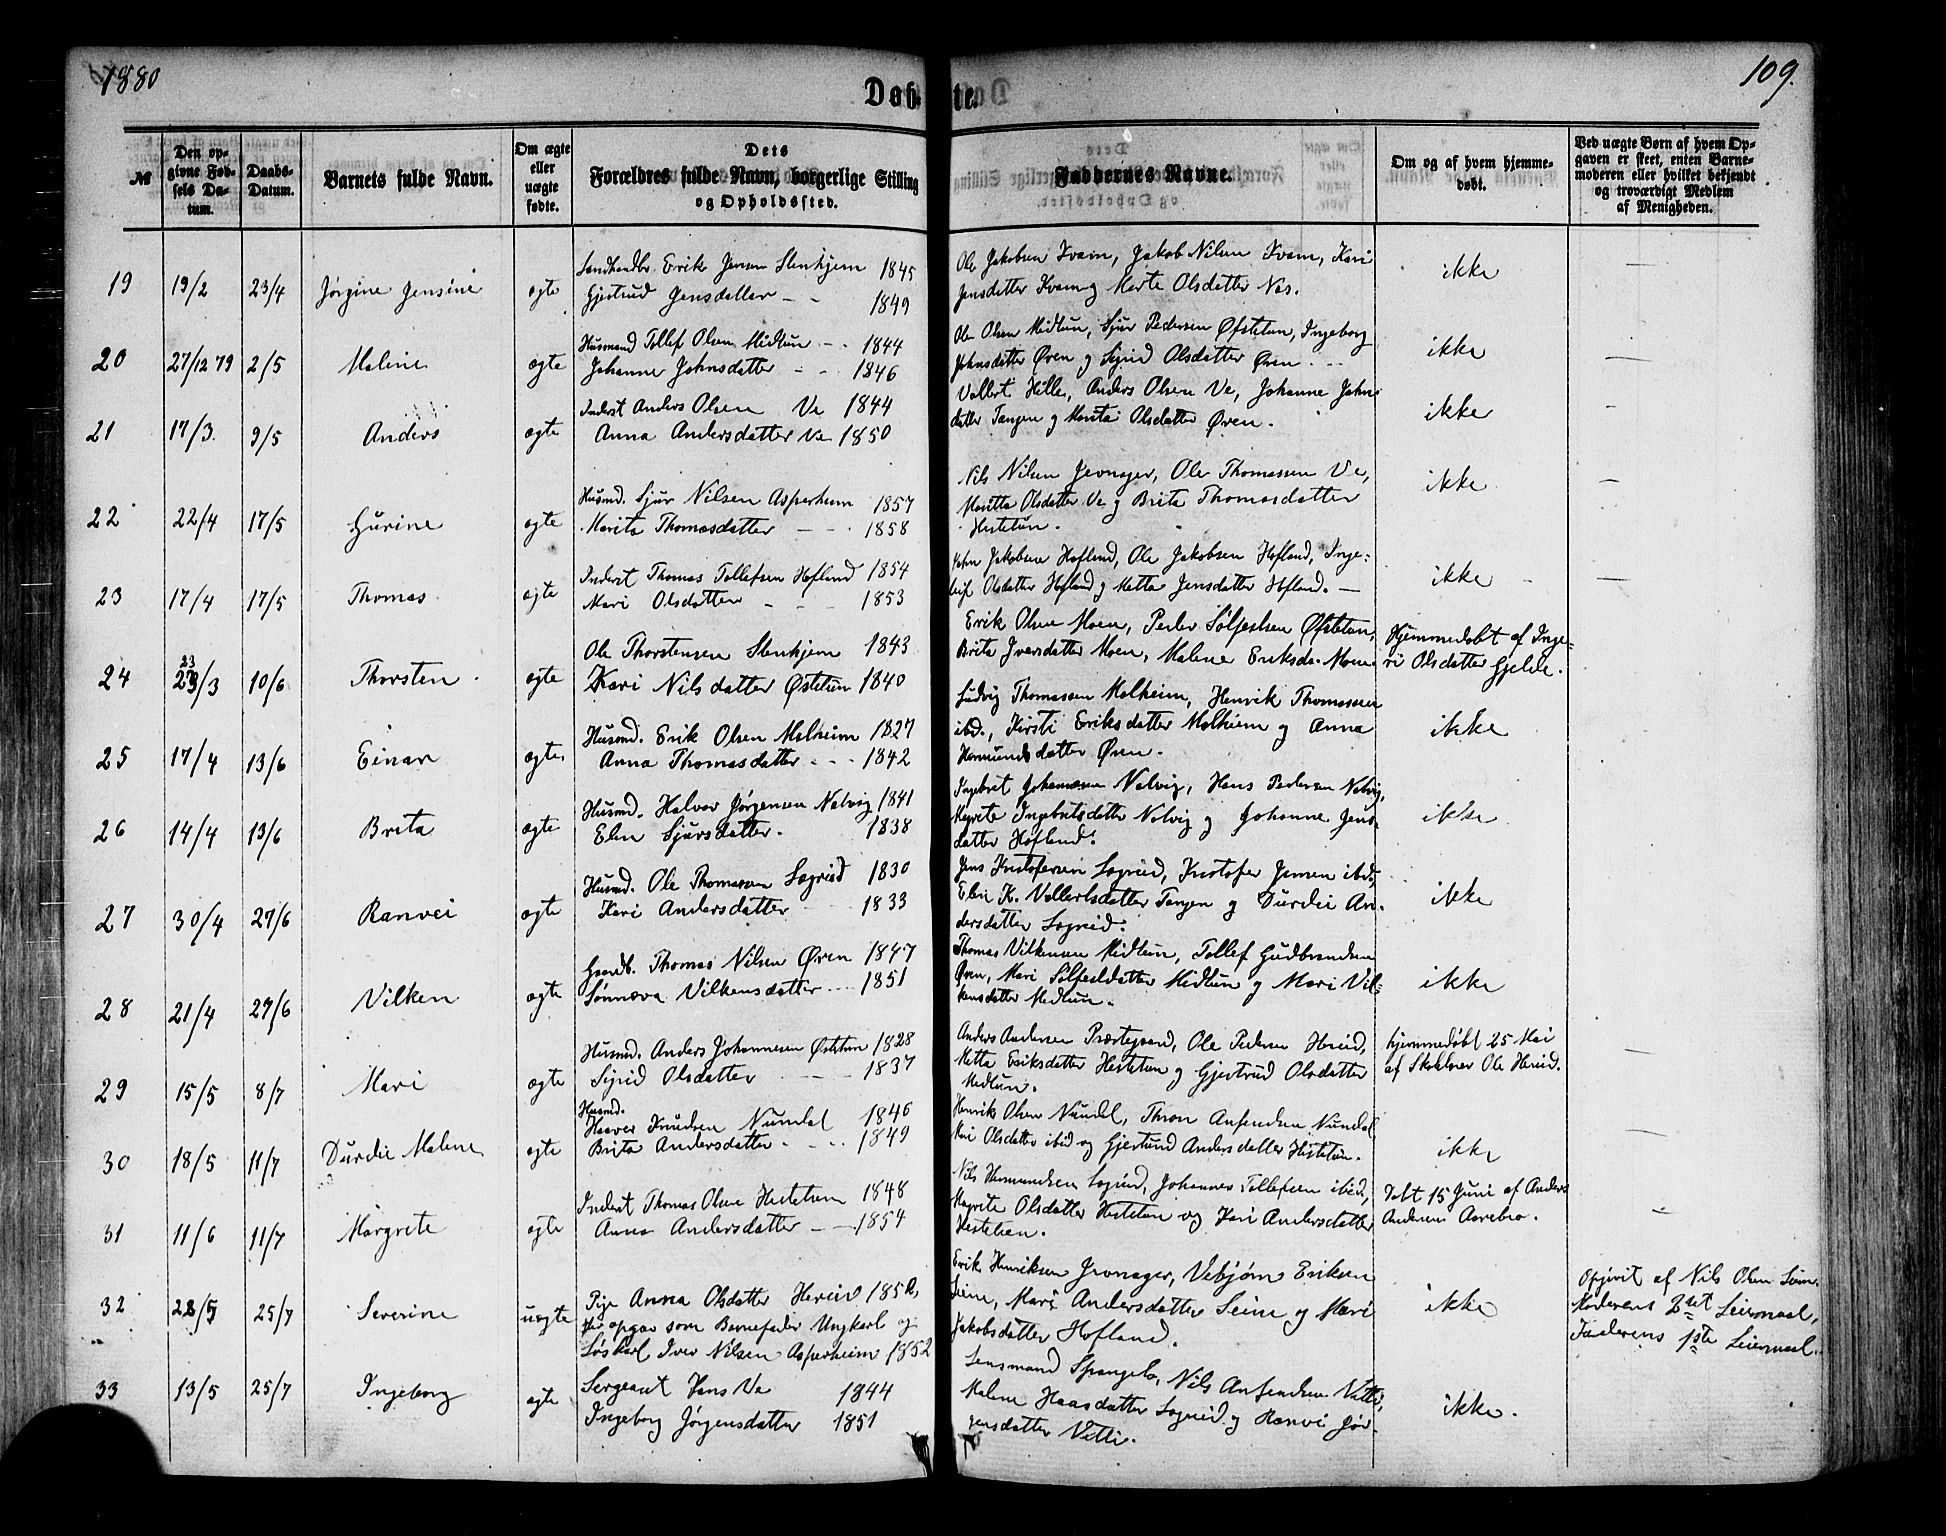 1880
109.
Døbte.
№
Den opgivne Fødsels Datum.
Daabs-Datum.
Barnets fulde Navn.
Om ægte eller uægte fødte.
Dets Forældres fulde Navn, borgerlige Stilling og Opholdssted.
Faddernes Navne.
Om og af hvem hjemmedøbt.
Ved uægte Børn af hvem Opgaven er skeet, enten Barnemoderen eller hvilket bekjendt og troværdigt Medlem af Menigheden.
19 19/2 23/4 Jørgine Jensine ægte
Landhandler Erik Jensen Stenhjem 1845
Gjertrud Jensdatter - - 1849
Ole Jakobsen Kvam, Jakob Nilsen Kvam, Kari
Jensdatter Kvam og Marte Olsdatter Næs.
ikke —
20 27/12 79 2/5 Malene ægte
Husmand Tollef Olsen Midtun - - 1844
Johanne Johnsdatter - - 1846
Ole Olsen Midtun, Sjur Pedersen Øfstetun, Ingeborg
Johnsdatter Øren og Sigrid Olsdatter Øren - - -
ikke —
21 17/3. 9/5 Anders ægte
Inderst Anders Olsen Ve 1844
Anna Andersdatter Ve 1850
Valbert Hille, Anders Olsen Ve, Johanne John-
datter Tangen og Marita Olsdatter Øren.
ikke —
22 22/4 17/5 Gurine ægte
Husmd. Sjur Nilsen Asperheim 1857
Marita Thomasdatter - - - 1858
Nils Nilsen Jevnager, Ole Thomassen Ve,
Maritta Olsdatter Ve og Brita Thomasdatter
Hestetun.
ikke —
23 17/4 17/5 Thomas ægte
Inderst Thomas Tollefsen Hofland 1854
Mari Olsdatter - - - 1853
John Jakobsen Hofland, Ole Jakobsen Hofland, Inge-
leif Olsdatter Hofland og Metta Jensdatter Hofland. —
ikke —
24 23/3 10/6 Thorsten. ægte
Ole Thorstensen Stenhjem 1843
Kari Nilsdatter Østetun 1840
Erik Olsen Moen, Peder Sølfestsen Øfstetun,
Brita Iversdatter Moen, Malene Eriksda. Moen
Hjemmedøbt af Inge-
ri Olsdatter Gjelde.
25 17/4 13/6 Einar ægte
Husmd. Erik Olsen Molheim 1827
Anna Thomasdatter - - - 1842
Ludvig Thomassen Molheim, Henrik Thomassen
ibd., Kirsti Eriksdatter Molheim og Anna
Hermundsdatter Øren.
ikke
26 14/4 13/6 Brita ægte
Husmd. Halvor Jørgensen Nalvig 1841
Elen Sjursdatter. 1838
Ingebret Johannesen Nalvig, Hans Pedersen Nalvig,
Magrete Ingebretsdatter Nalvig og Johanne Jens-
datter Hofland.
ikke
27 30/4 27/6 Ranvei ægte
Husmd. Ole Thomassen Sogneid 1830
Kari Andersdatter - - 1833
Jens Kristofersen Sogneid, Kristofer Jensen ibd.,
Elen K. Vollertsdatter Tangen og Durdei An-
dersdatter Sogneid.
ikke
28 21/4 27/6 Vilken ægte
Gaardb. Thomas Nilsen Øren 1847
Sønneva Vilkensdatter - - - 1851
Thomas Vilkensen Midtun, Tollef Gudbrandsen
Øren, Mari Sølfestdatter Midtun og Mari Vil-
kensdatter Midtun.
ikke
29 15/5 8/7 Mari ægte
Husmd. Anders Johannesen Østetun 1828
Sigrid Olsdatter - - - 1837
Anders Andersen Præstegaard, Ole Pedersen Hereid,
Metta Eriksdatter Hestetun og Gjertrud Olsdatter
Midtun.
hjemmedøbt 25 Mai
af Skolelærer Ole Hereid.
—
30 18/5 11/7 Durdei Malene ægte
Husmd.
Haaver Knudsen Nundal 1846
Brita Andersdatter - - - 1849
Henrik Olsen Nundal, Thron Anfendsen Nundal
Mari Olsdatter ibid og Gjertrud Andersdatter Hestetun.
ikke —
31 11/6 11/7 Margrete ægte
Inderst Thomas Olsen Hestetun 1848
Anna Andersdatter - - 1854
Nils Hermundsen Sogneid, Johannes Tollefsen ibid,
Magrete Olsdatter Hestetun og Kari Andersdatter
Hestetun.
Døbt 15 Juni af Anders
Andersen Aarebro.
—
32 28/5 25/7 Severine uægte
Pige Anna Olsdatter Hereid 1852,
der opgav som Barnefader Ungkarl og
Løskarl Iver Nilsen Asperheim 1852
Erik Henriksen Jevnager, Vebjørn Eriksen
Seim, Mari Andersdatter Seim og Mari
Jakobsdatter Hofland.
ikke
Opgivet af Nils Olsen Seim.
Moderens 2det Leiermaal,
Faderens 1ste Leiermaal.
33 13/5 25/7 Ingeborg ægte
Sergeant Hans Ve 1844
Ingeborg Jørgensdatter 1851
Lensmand Spangelo, Nils Anfendsen Vetti,
Malene Haasdatter Sogneid og Ranvei Jør-
gensdatter Vetti.
ikke.